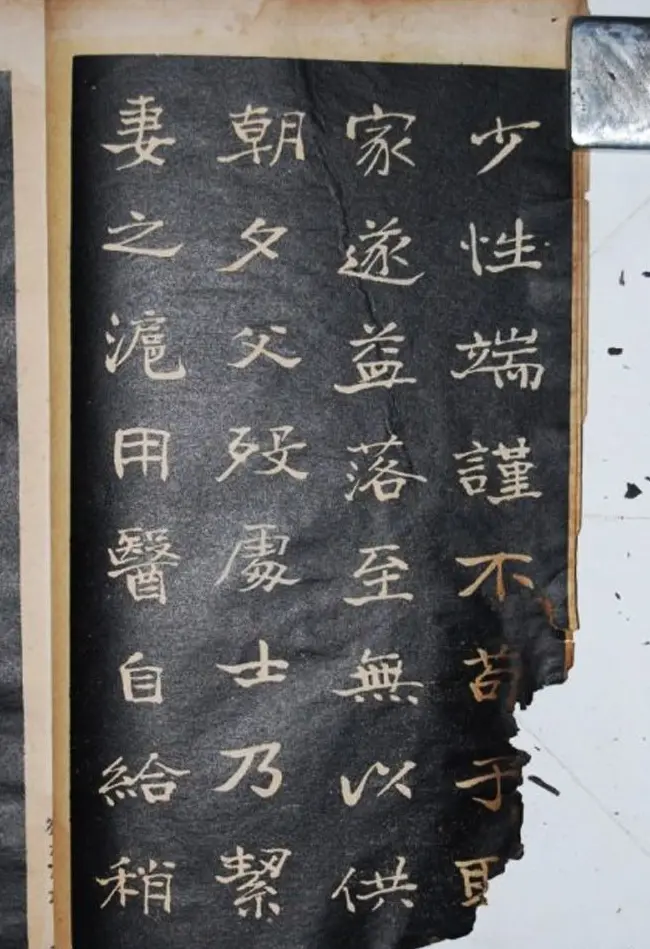 少性端謹不苟于
家遂益落至無以供
朝夕父歿處士乃絜
妻之滬用醫自給稍